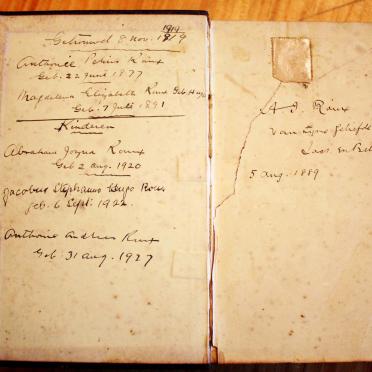 1919
Getrouwd 8 Nov. 1919
Anthonie Petrus Roux
Geb: 22 June 1877
Magdalena Elizabeth Roux Geb.
Geb: 7 Julie 1891
Kinderen
Abraham Josua Roux
Geb 2 Aug. 1920
Jacobus Stephanus Hugo Roux
geb. 6 Sept: 1922
Anthonie Andries Roux
Geb: 31 Aug. 1927
A. J. Roux
van zyne geliefde
en
5 Aug. 1889